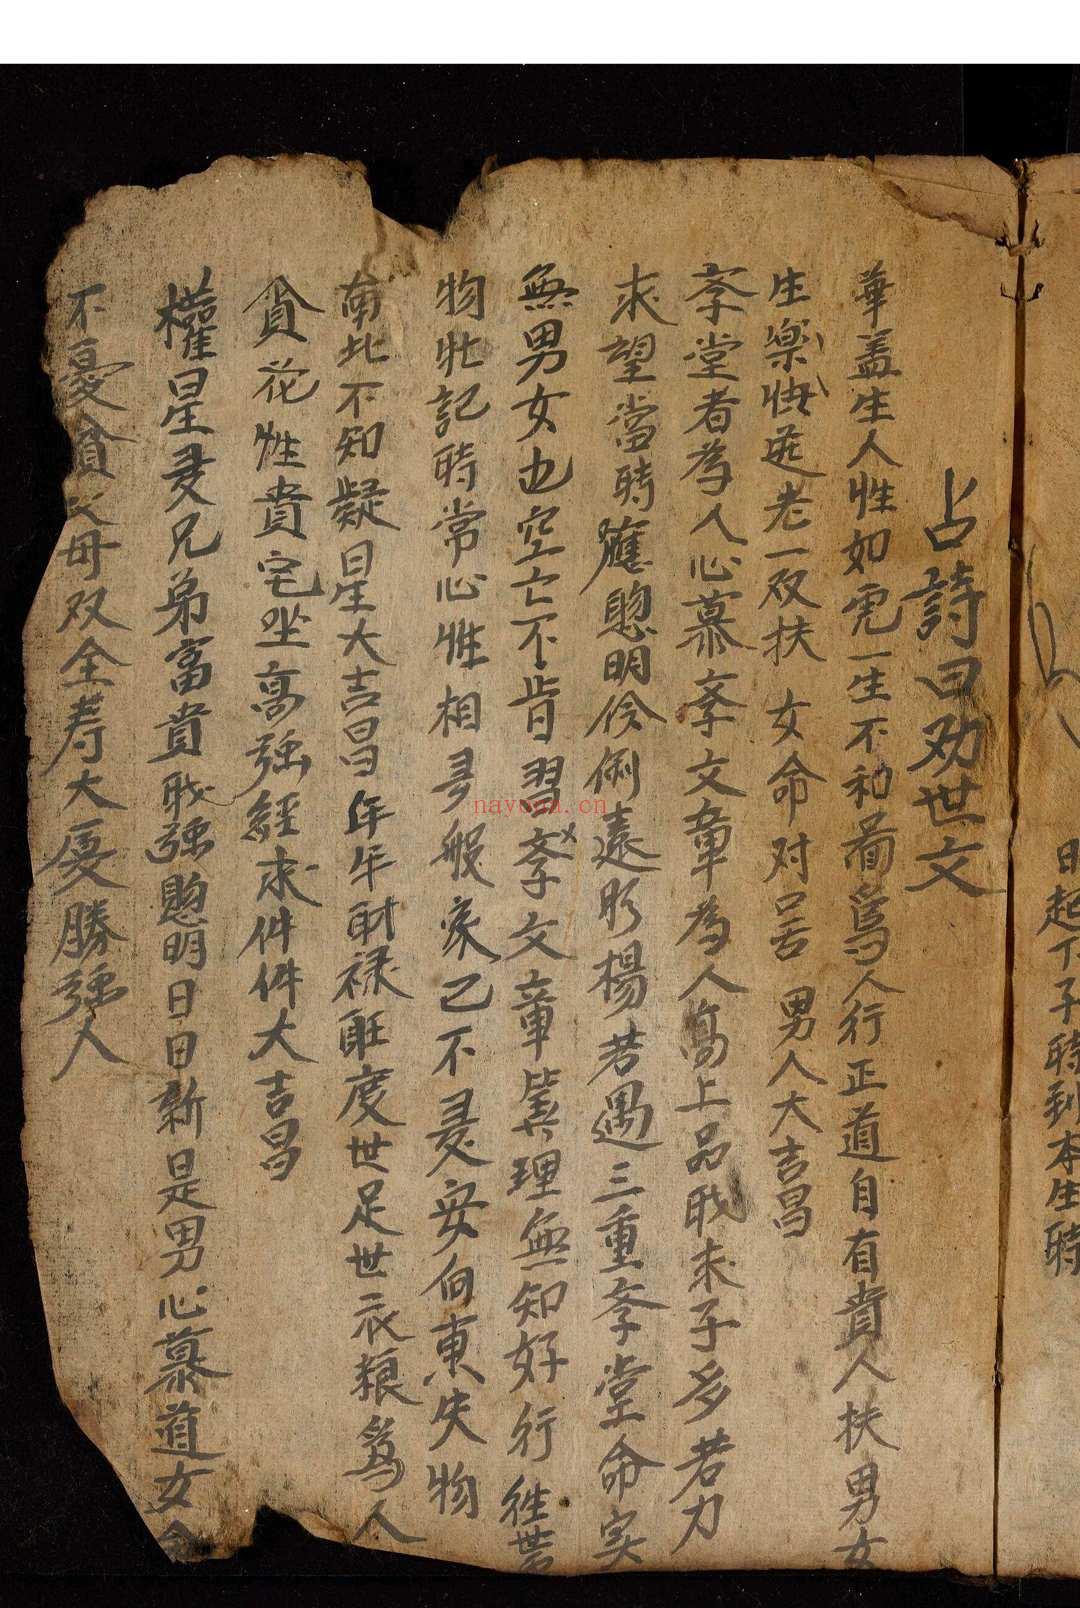 日起下子時到本生時
占詩曰劝世文
華盖生人性如 一生不和 為人行正道自有貴人扶男女
生樂快 老一双扶 女命对 男人大吉昌
孝堂者为人心慕孝文章为人高上品 求子多若力
求望當時應聰明伶俐遠 楊若遇三重孝堂命实
無男女也空亡不肯習孝文章 理無知好行
物牡記時常心性相 般家己不 安向東失物
南北不知疑星大吉昌年年財禄旺度世足世衣粮為人
貪花性貴宅坐高強經求件件大吉昌
權星 兄弟富貴 強聰明日日新是男心慕道女命
不憂貧父母双全寿大 勝強人
nayona.cn